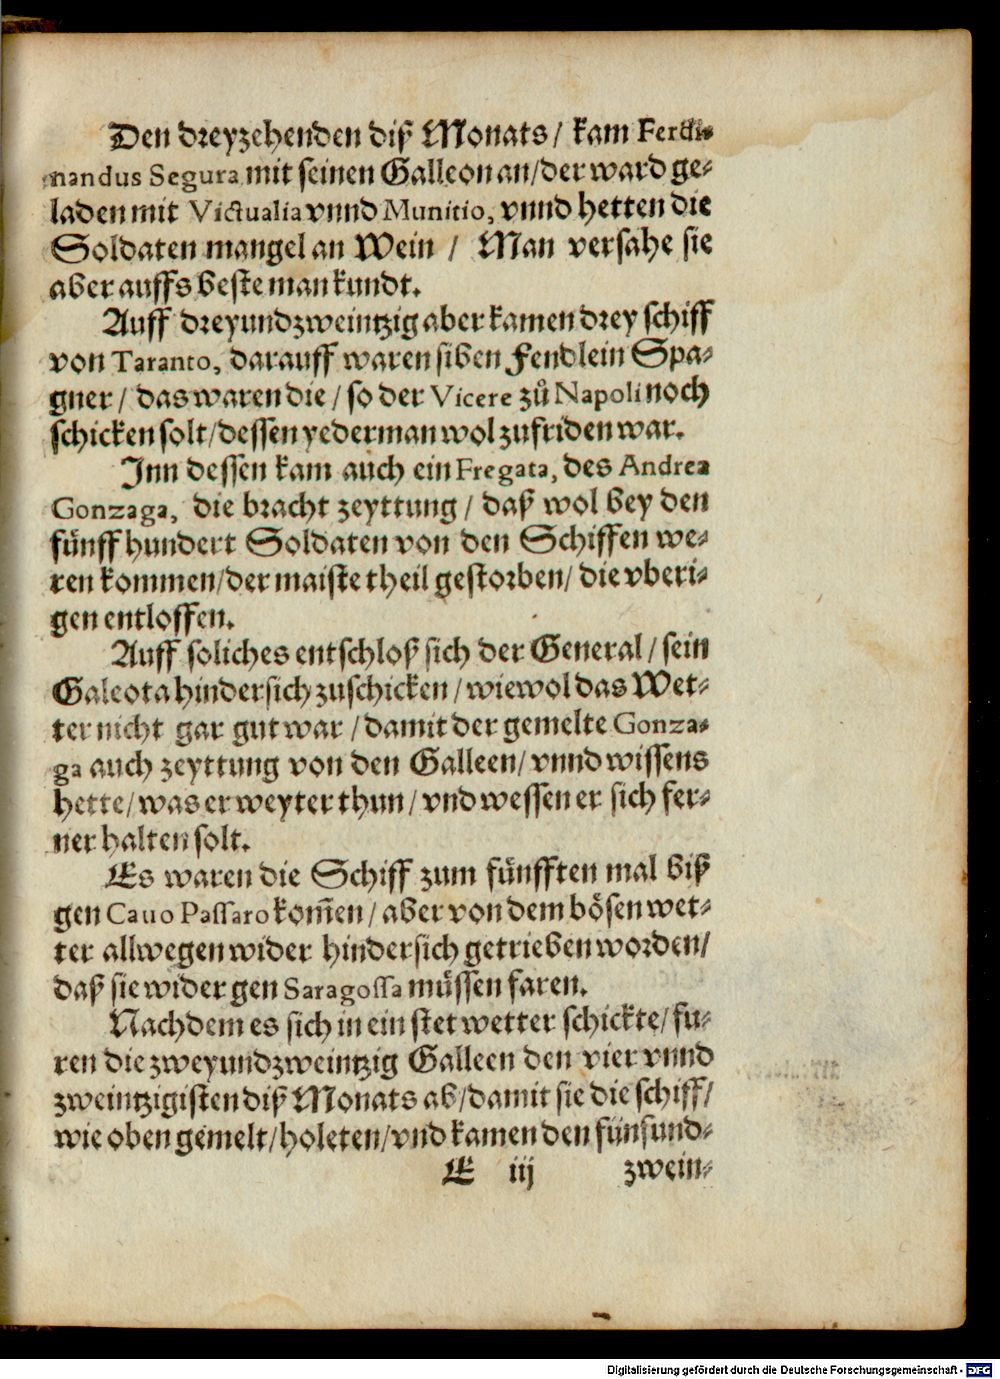 Den dreyzehenden diß Monats / kam Ferdi-
nandus Segura mit seinen Galleon an / der ward ge-
laden mit Victualia vnnd Munitio, vnnd hetten die
Soldaten mangel an Wein / Man versahe sie
aber auffs beste man kundt.
Auff dreyundzweintzig aber kamen drey schiff
von Taranto, darauff waren siben Fendlein Spa-
gner / das waren die / so der Vicere zů Napoli noch
schicken solt / dessen yederman wol zufriden war.
Inn dessen kam auch ein Fregata, des Andrea
Gonzaga, die bracht zeyttung / daß wol bey den
fünff hundert Soldaten von den Schiffen we-
ren kommen / der maiste theil gestorben / die vberi-
gen entloffen.
Auff soliches entschloß sich der General / sein
Galeota hindersich zuschicken / wiewol das Wet-
ter nicht gar gut war / damit der gemelte Gonza-
ga auch zeyttung von den Galleen / vnnd wissens
hette / was er weyter thun / vnd wessen er sich fer-
ner halten solt.
Es waren die Schiff zum fünfften mal biß
gen Cauo Passaro kom̃en / aber von dem bösen wet-
ter allwegen wider hindersich getrieben worden /
daß sie wider gen Saragossa müssen faren.
Nachdem es sich in ein stet wetter schickte / fu-
ren die zweyundzweintzig Galleen den vier vnnd
zweintzigisten diß Monats ab / damit sie die schiff /
wie oben gemelt / holeten / vnd kamen den fünfund-
E iij zwein-
Digitalisierung gefördert durch die Deutsche Forschungsgemeinschaft - DFG